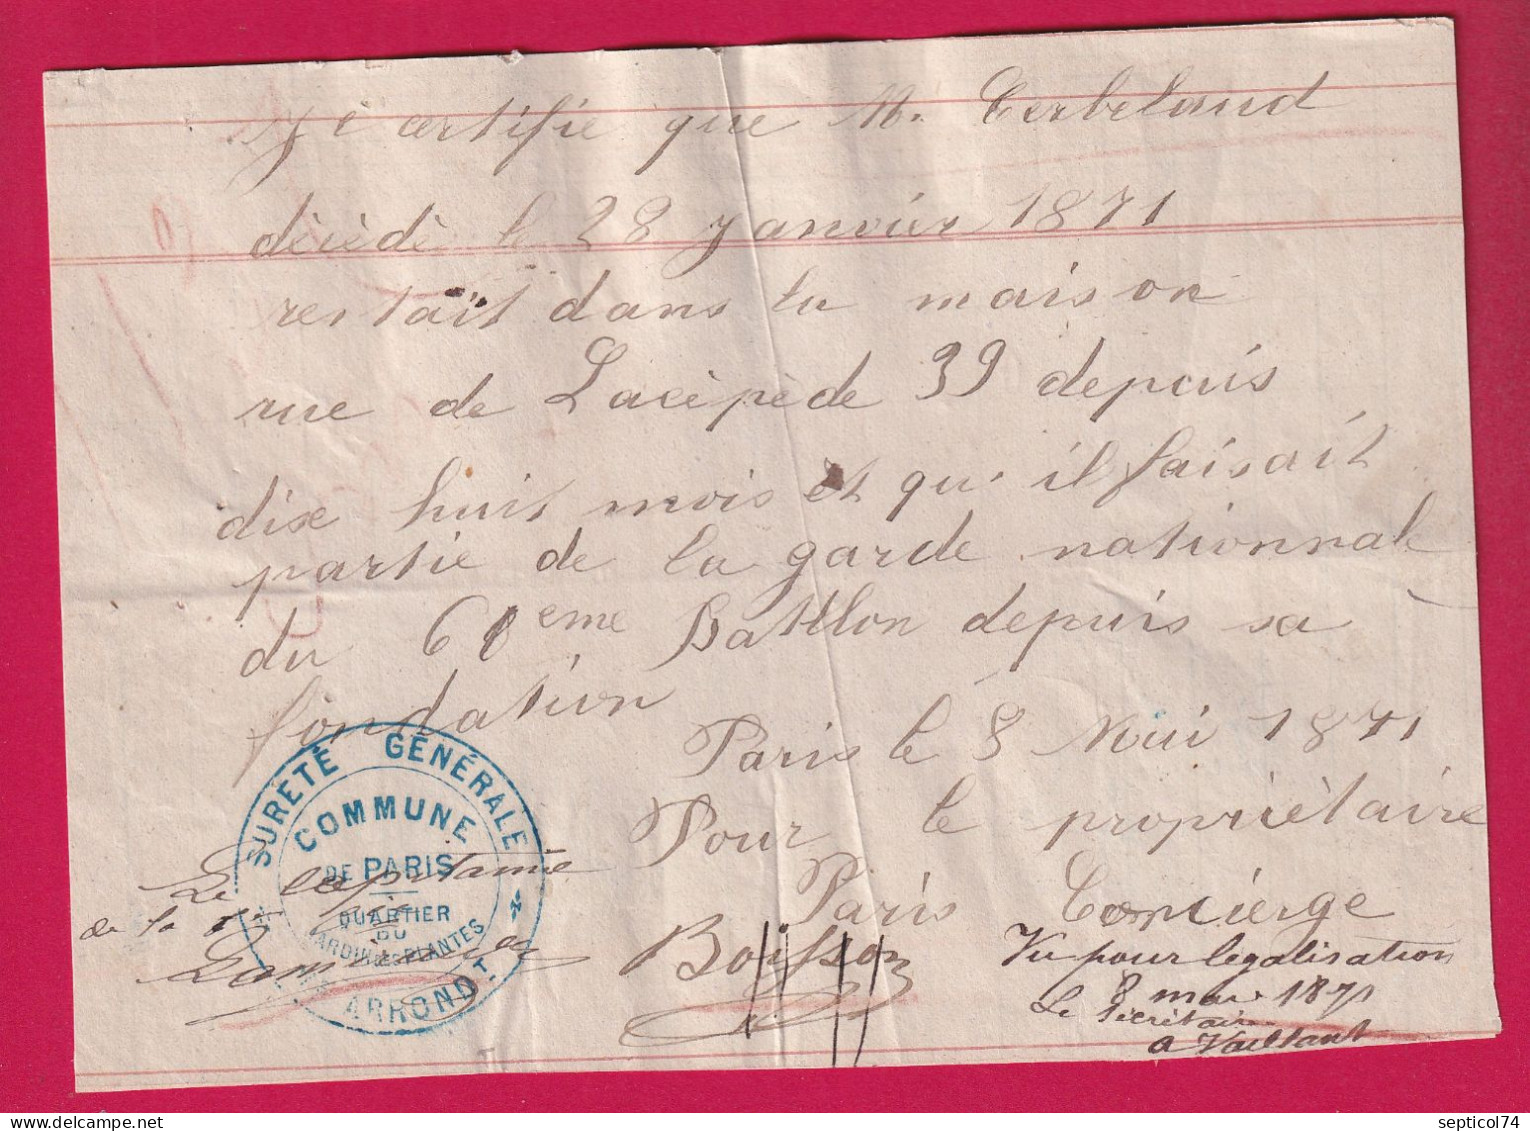 Je certifie que M. Cerbelaud
dècèdè le 28 Janvier 1871
restait dans la maison
rue de Lacèpède 39 depuis
dixe huit mois et qu'il faisait
partie de la garde nationnale
du 60 eme Batllon depuis sa
fondation
Paris le 8 Mai 1871
Pour le propriètaire
Paris Concierge
Boisson
Vu pour legalisation
8 mai 1871
Le Secrétaire
A Vaillant
Le capitaine
de la
SURETÉ GÉNÉRALE
COMMUNE
DE PARIS
QUARTIER
DU
JARDIN DES PLANTES
ARRONDT.
septicol74